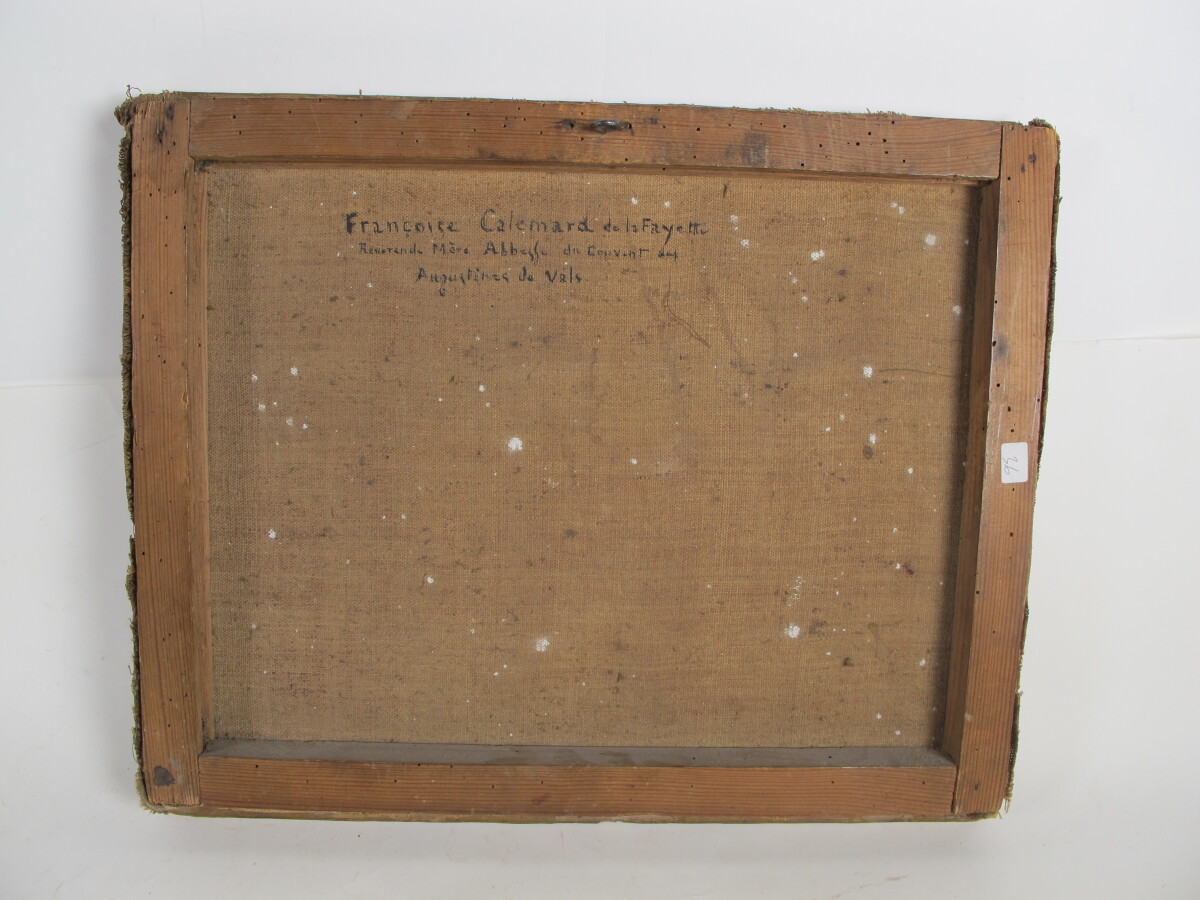 Françoise Calemard de la Fayette
Reverende Mère Abbesse du Couvent des
Augustines de Vals